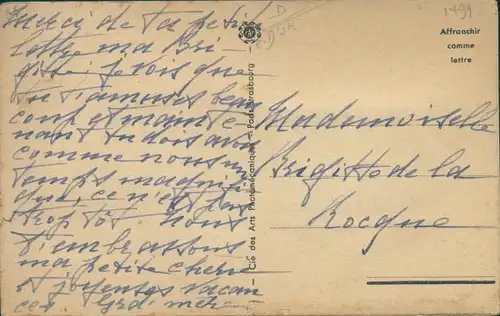 Merci de ta petite
lettre ma Bri-
gitte, je vois que
tu t'amuses beau
coup et mainte-
nant tu dois avoir
comme nous un
temps magnifi
que, ce n'est pas
trop tôt. Nous
t'embrassons
ma petite cherie
et joyeuses vacan
ces. Grd' mère
Cie des Arts Photomécaniques - Paris-Strasbourg
1499
Affranchir
comme
lettre
Mademoiselle
Brigitte de la
Rocque